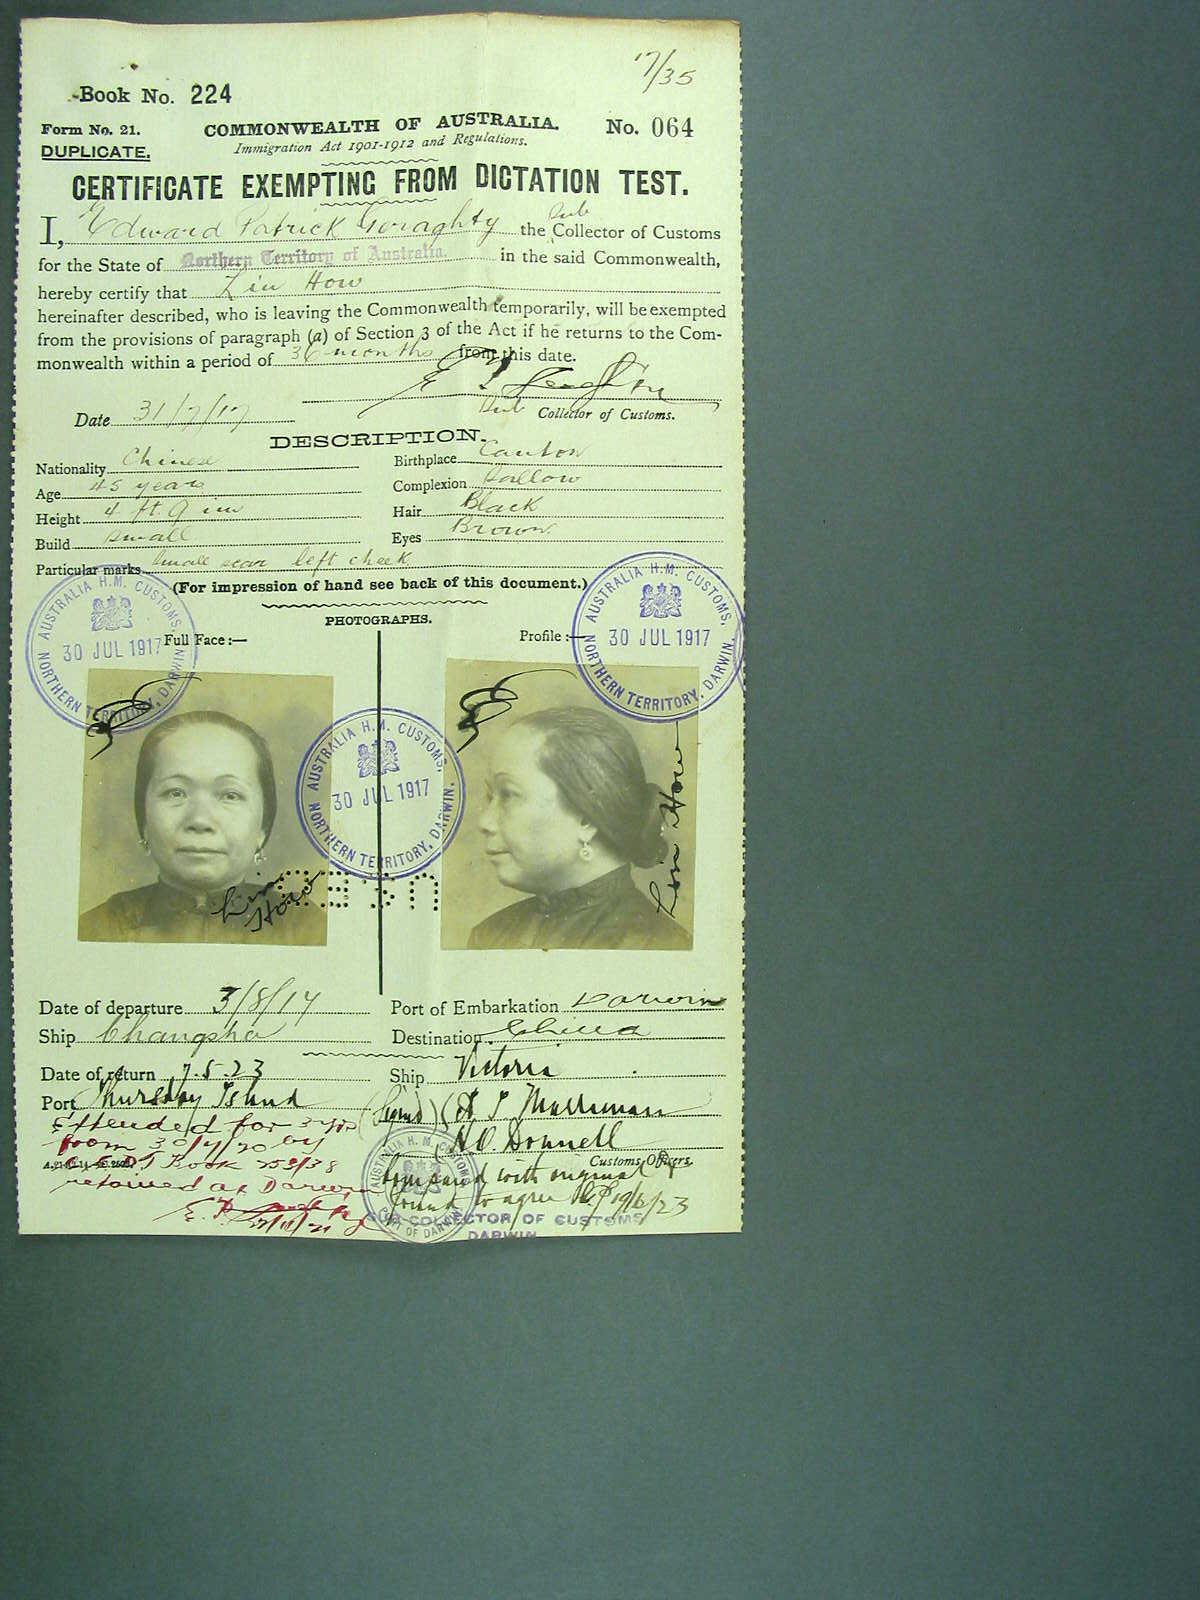 17/35
Book No. 224
Form No. 21.
COMMONWEALTH OF AUSTRALIA.
No. 064
DUPLICATE.
Immigration Act 1901-1912 and Regulations.
CERTIFICATE EXEMPTING FROM DICTATION TEST.
I, Edward Patrick Geraghty the Sub Collector of Customs
for the State of Northern Territory of Australia. in the said Commonwealth,
hereby certify that Lin How
hereinafter described, who is leaving the Commonwealth temporarily, will be exempted
from the provisions of paragraph (a) of Section 3 of the Act if he returns to the Com-
monwealth within a period of 36 months from this date.
Date 31/7/17
Sub Collector of Customs.
DESCRIPTION.
Nationality Chinese
Birthplace Canton
Age 45 years
Complexion Sallow
Height 4 ft 9 ins
Hair Black
Build Small
Eyes Brown
Particular marks Small scar left cheek
(For impression of hand see back of this document.)
PHOTOGRAPHS.
Full Face :—
Profile :—
AUSTRALIA H.M. CUSTOMS,
30 JUL 1917
NORTHERN TERRITORY, DARWIN.
AUSTRALIA H.M. CUSTOMS,
30 JUL 1917
NORTHERN TERRITORY, DARWIN.
AUSTRALIA H.M. CUSTOMS,
30 JUL 1917
NORTHERN TERRITORY, DARWIN.
Lin How
Lin How
Date of departure 3/8/17
Port of Embarkation Darwin
Ship Changsha
Destination China
Date of return 7.5.23
Ship Victoria
Port Thursday Island
(Signed)
H. O. Donnell
Customs Officers.
Extended for 3 yrs
from 30/7/20 by
Book 253/38
retained at Darwin
Compared with original &
found to agree 19/6/23
AUSTRALIA H.M. CUSTOMS
PORT OF DARWIN
SUB-COLLECTOR OF CUSTOMS
DARWIN